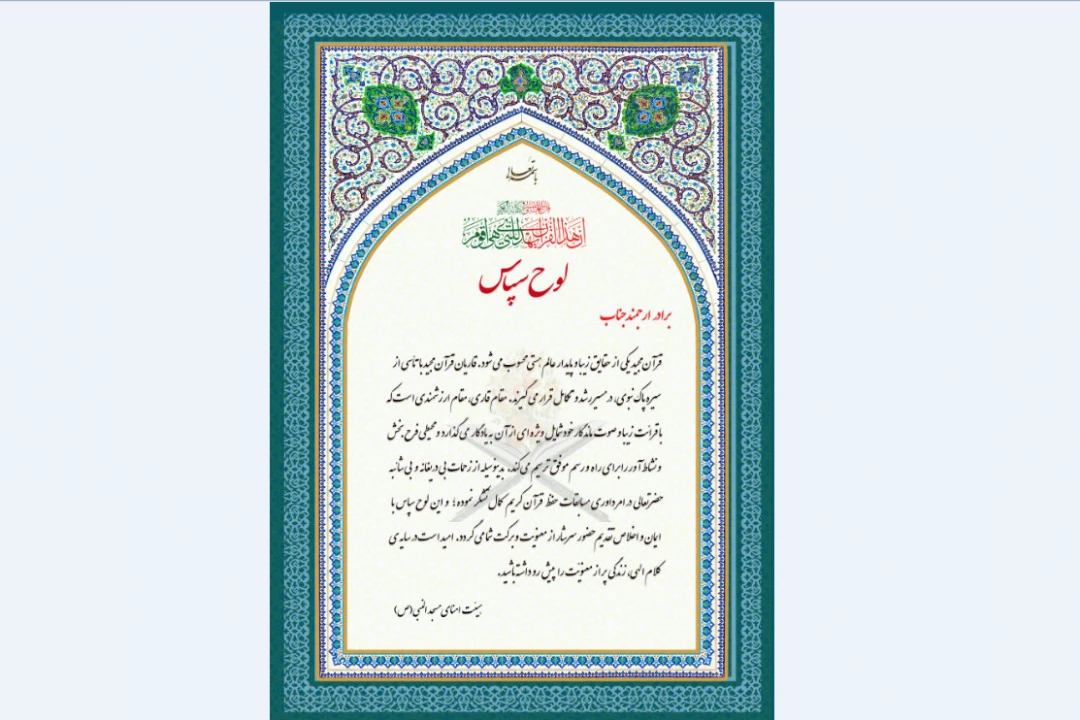 باسمه تعالی
ان هذا القرآن یهدی للتی هی اقوم
لوح سپاس
برادر ارجمند جناب
قرآن مجید یکی از حقایق زیبا و پایدار عالم هستی محسوب می شود. قاریان قرآن مجید با تاسی از
سیره پاک نبوی، در مسیر رشد و تکامل قرار می گیرند. مقام قاری، مقام ارزشمندی است که
با قرائت زیبا و صوت ماندگار خود شمایل ویژه ای از آن به یادگار می گذارد و محیطی فرح بخش
و نشاط آور را برای راه و رسم موفق ترسیم می کند. بدینوسیله از زحمات بی دریغانه و بی شائبه
حضرتعالی در امر داوری مسابقات حفظ قرآن کریم کمال تشکر نموده؛ و این لوح سپاس با
ایمان و اخلاص تقدیم حضور سرشار از معنویت و برکت شما می گردد. امید است در سایه ی
کلام الهی، زندگی پر از معنویت را پیش رو داشته باشید.
هیئت امنای مسجد النبی (ص)